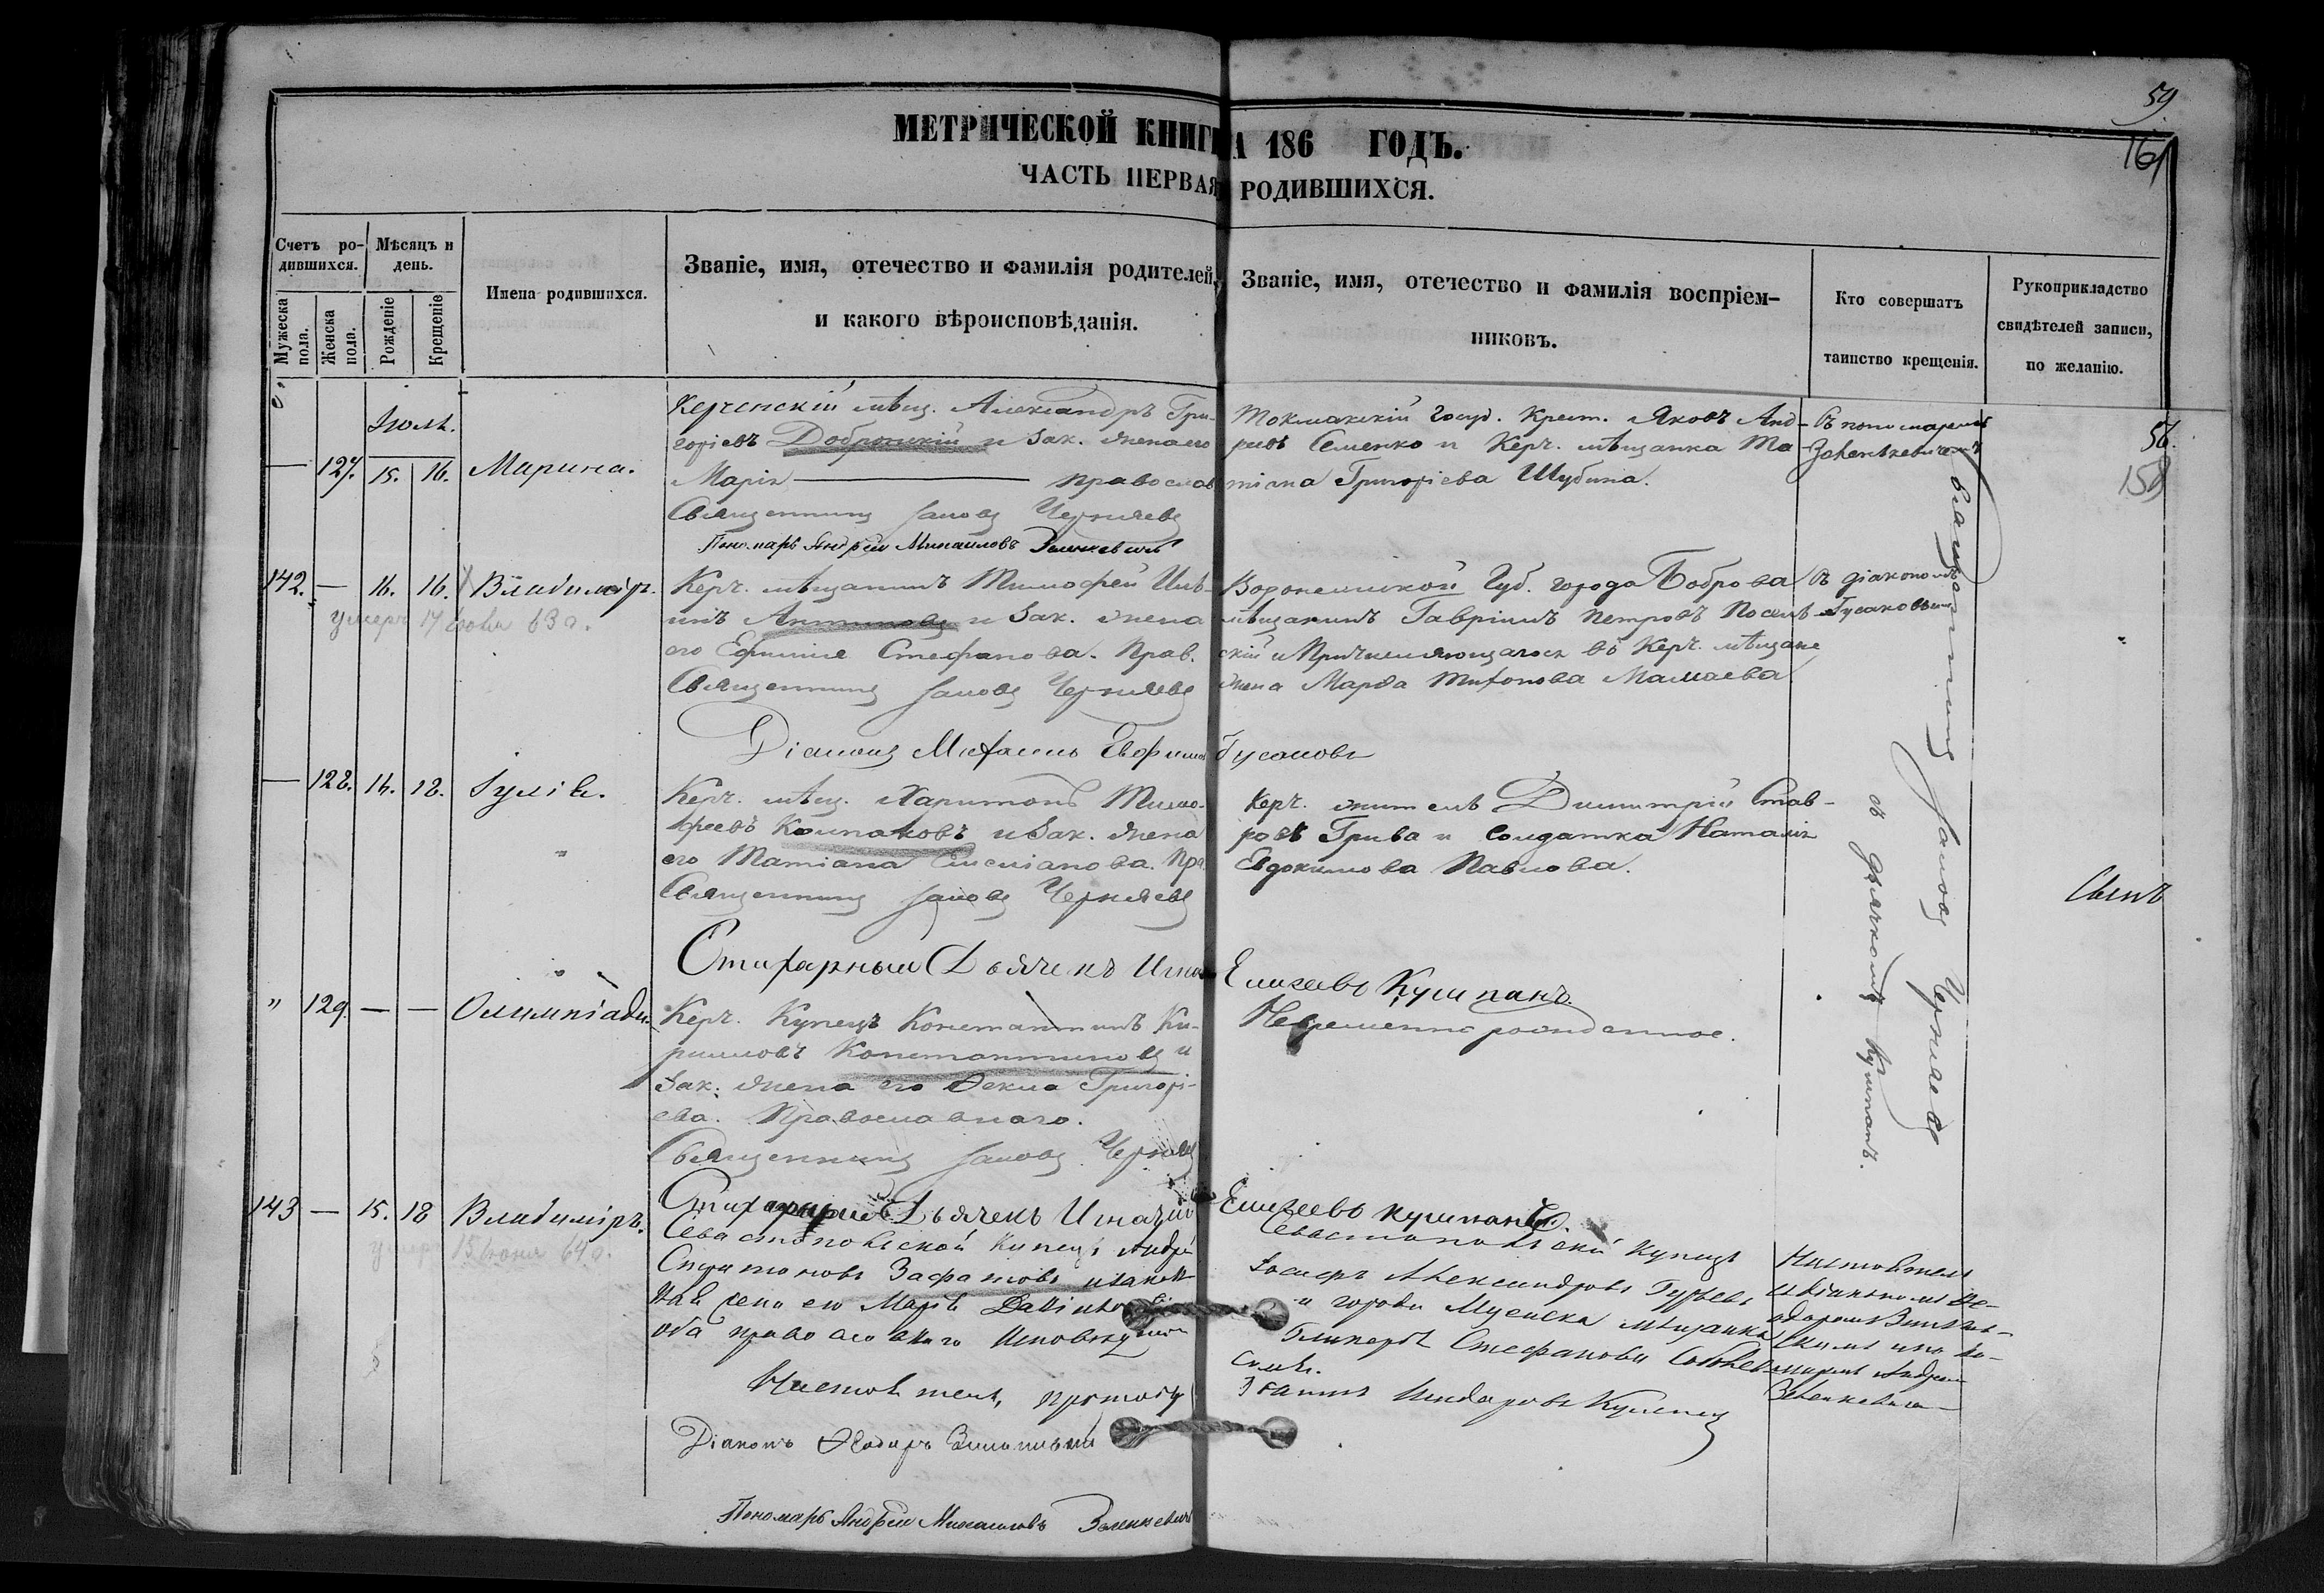 59
161
МЕТРИЧЕСКОЙ КНИГИ
А 186 ГОДЪ.
ЧАСТЬ ПЕРВАЯ
РОДИВШИХСЯ.
Счетъ родившихся.
Мужеска пола.
Женска пола.
Мѣсяцъ и день.
Рожденіе
Крещеніе
Имена родившихся.
Званіе, имя, отечество и фамилія родителей,
и какого вѣроисповѣданія.
Званіе, имя, отечество и фамилія воспріем-
никовъ.
Кто совершатъ
таинство крещенія.
Рукоприкладство
свидѣтелей записи,
по желанію.
Іюль.
— 127. 15. 16. Марина.
Керченскій мѣщ. Александръ Гри-
горіевъ Добронскій и зак. жена его
Марія — православ
Священникъ Іаковъ Черняевъ
Пономарь Андрей Михаиловъ Зеленкевичъ
Токмакскій госуд. Крест. Яковъ Анд-
ревъ Семенко и Керч. мѣщанка Та-
тіана Григорьева Шубина.
съ пономаремъ
Зеленкевичемъ
56.
159
142. — 16. 16. Владиміръ.
умеръ 17 Іюня 63 г.
Керч. мѣщанинъ Тимофей Иль-
инъ Антиповъ и зак. жена
его Ефимія Стефанова. Прав.
Священникъ Іаковъ Черняевъ
Діаконъ Михаилъ Евфимов
Гусаковъ
Воронежской Губ. города Боброва
мѣщанинъ Гавріилъ Петровъ Посель-
скій и Причисляющагося въ Керч. мѣщане
жена Марѳа Тихонова Мамаева
съ діакономъ
Гусаковымъ
— 128. 14. 18. Іулія.
Керч. мѣщ. Харитонъ Тимо-
феевъ Колпаковъ и зак. жена
его Татіана Емеліанова. Пра
Священникъ Іаковъ Черняевъ
Керч. житель Димитрій Став-
ровъ Грива и Солдатка Наталія
Евдокимова Павлова.
Стихарный Дьячекъ
Елисеевъ Кушпанъ.
Священникъ Іаковъ Черняевъ
съ дьячкомъ Кушпанъ.
Сынъ
" 129. — — Олимпіада
Керч. Купецъ Константинъ Ки-
рилловъ Константиновъ и
Зак. жена его Ѳекла Григорі-
ева. Православнаго.
Священникъ Іаковъ Черняев
Невременно рожденное.
143 — 15. 18 Владиміръ.
умеръ 15 Іюня 64 г.
Стихарный Дьячекъ Игнатій
Елисеевъ Кушпанъ.
Севастопольской Купецъ Андрей
Спиридоновъ Зафатовъ и закон
ная жена его Марія
оба православнаго исповѣд
Настоятель, протоіер
Діаконъ Ѳеодоръ
Пономарь Андрей Михаиловъ Зеленкевичъ
Севастопольскій Купецъ
Александровъ Гурьевъ
и города мѣщанка
Стефанова
Купецъ
Настоятель
съ діакономъ Ѳе-
одоромъ
и по-
номаремъ Андреем
Зеленкевичем